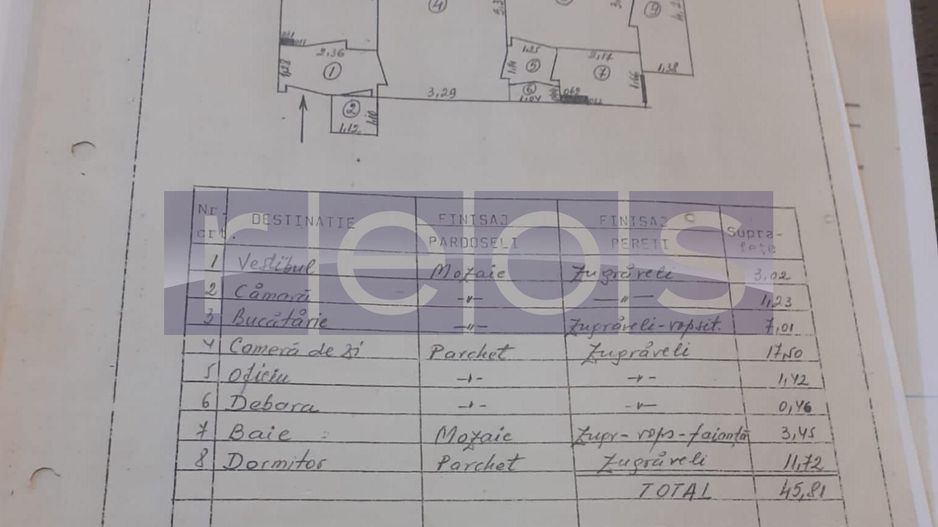 4
5,3
3
4,2
9
2,36
1,28
1
1,25
1,14
5
2,17
7
1,66
1,38
6
1,04
0,69
3,29
2
1,10
1,12
reos
Nr. crt. DESTINATIE FINISAJ PARDOSELI FINISAJ PERETI Supra-fețe
1 Vestibul Mozaic Zugrăveli 3,02
2 Cămară -"- -"- 1,23
3 Bucătărie -"- Zugrăveli-vopsit. 7,01
4 Cameră de zi Parchet Zugrăveli 17,50
5 Oficiu -"- -"- 1,42
6 Debara -"- -"- 0,46
7 Baie : Mozaic Zugr-vops-faianță 3,45
8 Dormitor Parchet Zugrăveli 11,72
TOTAL 45,81